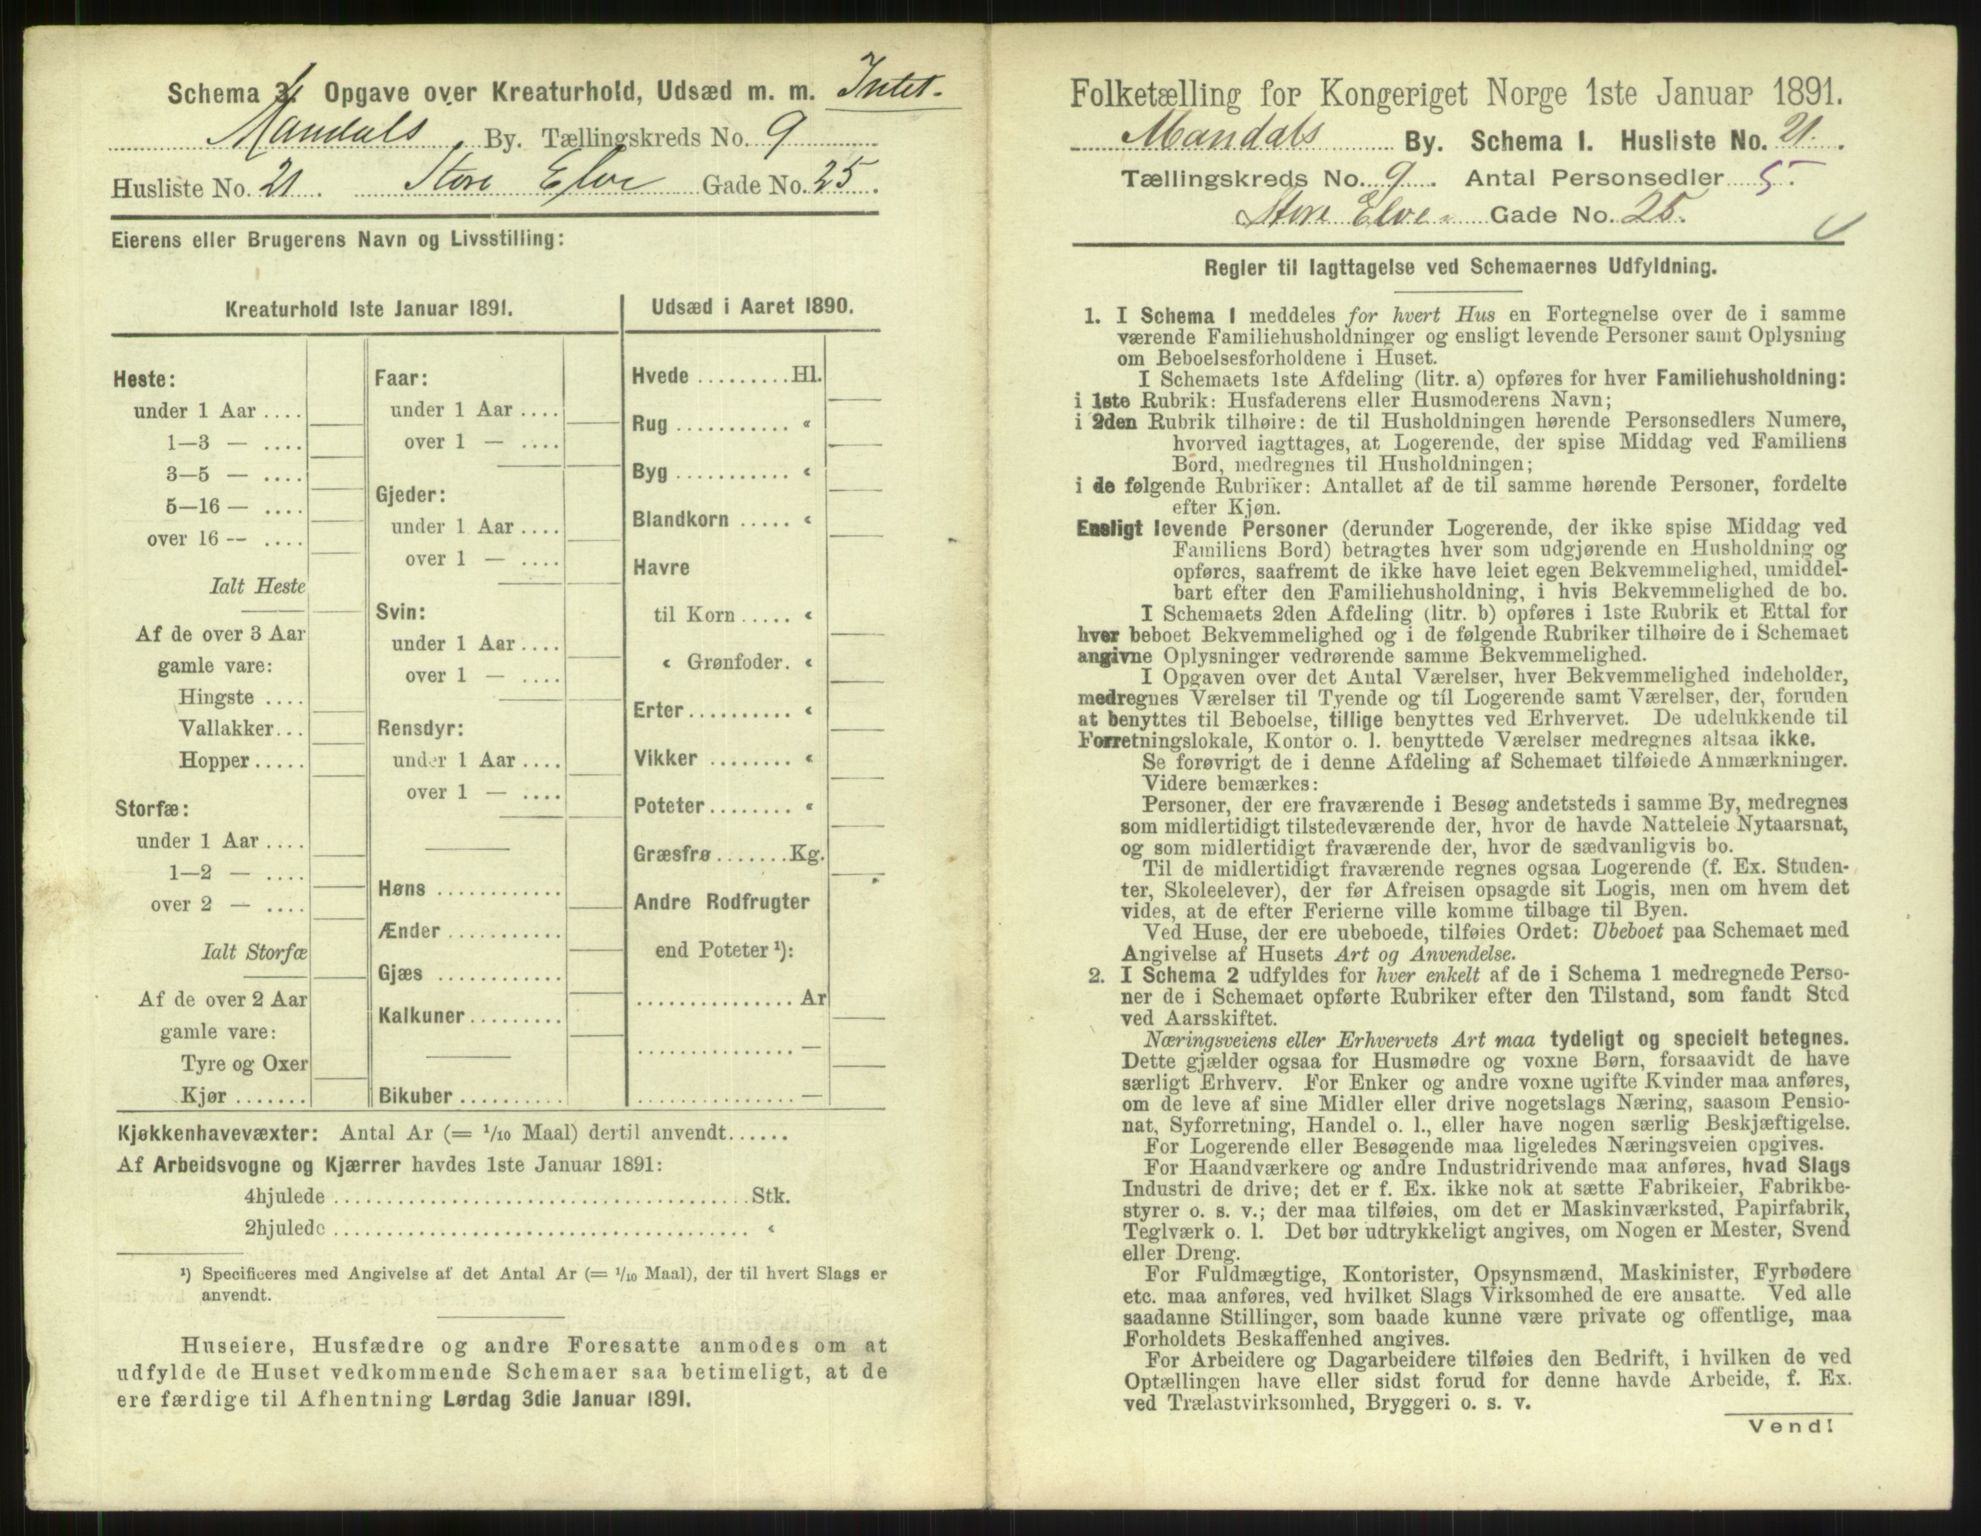 Schema 3. Opgave over Kreaturhold, Udsæd m. m. Intet.
Mandals By. Tællingskreds No. 9
Husliste No. 21 Store Elve Gade No. 25.
Eierens eller Brugerens Navn og Livsstilling:
Kreaturhold 1ste Januar 1891.
Heste:
under 1 Aar ....
1—3 — ....
3—5 — ....
5—16 — ....
over 16 — ....
Ialt Heste
Af de over 3 Aar
gamle vare:
Hingste ....
Vallakker...
Hopper.....
Storfæ:
under 1 Aar ....
1—2 — ....
over 2 — ....
Ialt Storfæ
Af de over 2 Aar
gamle vare:
Tyre og Oxer
Kjør .......
Faar:
under 1 Aar ....
over 1 — ....
Gjeder:
under 1 Aar ....
over 1 — ....
Svin:
under 1 Aar ....
over 1 — ....
Rensdyr:
under 1 Aar ....
over 1 — ....
Høns ...........
Ænder ...........
Gjæs ...........
Kalkuner.........
Bikuber ..........
Udsæd i Aaret 1890.
Hvede .........Hl.
Rug ........... «
Byg ........... «
Blandkorn ..... «
Havre
til Korn ..... «
« Grønfoder. «
Erter.......... «
Vikker ........ «
Poteter........ «
Græsfrø .......Kg.
Andre Rodfrugter
end Poteter ¹):
............... Ar
............... —
............... —
Kjøkkenhavevæxter: Antal Ar (= 1/10 Maal) dertil anvendt......
Af Arbeidsvogne og Kjærrer havdes 1ste Januar 1891:
4hjulede ........................................Stk.
2hjulede ........................................ «
¹) Specificeres med Angivelse af det Antal Ar (= 1/10 Maal), der til hvert Slags er
anvendt.
Huseiere, Husfædre og andre Foresatte anmodes om at
udfylde de Huset vedkommende Schemaer saa betimeligt, at de
ere færdige til Afhentning Lørdag 3die Januar 1891.
Folketælling for Kongeriget Norge 1ste Januar 1891.
Mandals By. Schema I. Husliste No. 21.
Tællingskreds No. 9. Antal Personsedler 5.
Store Elve Gade No. 25.
Regler til Iagttagelse ved Schemaernes Udfyldning.
1. I Schema I meddeles for hvert Hus en Fortegnelse over de i samme
værende Familiehusholdninger og ensligt levende Personer samt Oplysning
om Beboelsesforholdene i Huset.
I Schemaets 1ste Afdeling (litr. a) opføres for hver Familiehusholdning:
i 1ste Rubrik: Husfaderens eller Husmoderens Navn;
i 2den Rubrik tilhøire: de til Husholdningen hørende Personsedlers Numere,
hvorved iagttages, at Logerende, der spise Middag ved Familiens
Bord, medregnes til Husholdningen;
i de følgende Rubriker: Antallet af de til samme hørende Personer, fordelte
efter Kjøn.
Ensligt levende Personer (derunder Logerende, der ikke spise Middag ved
Familiens Bord) betragtes hver som udgjørende en Husholdning og
opføres, saafremt de ikke have leiet egen Bekvemmelighed, umiddel-
bart efter den Familiehusholdning, i hvis Bekvemmelighed de bo.
I Schemaets 2den Afdeling (litr. b) opføres i 1ste Rubrik et Ettal for
hver beboet Bekvemmelighed og i de følgende Rubriker tilhøire de i Schemaet
angivne Oplysninger vedrørende samme Bekvemmelighed.
I Opgaven over det Antal Værelser, hver Bekvemmelighed indeholder,
medregnes Værelser til Tyende og til Logerende samt Værelser, der, foruden
at benyttes til Beboelse, tillige benyttes ved Erhvervet. De udelukkende til
Forretningslokale, Kontor o. l. benyttede Værelser medregnes altsaa ikke.
Se forøvrigt de i denne Afdeling af Schemaet tilføiede Anmærkninger.
Videre bemærkes:
Personer, der ere fraværende i Besøg andetsteds i samme By, medregnes
som midlertidigt tilstedeværende der, hvor de havde Natteleie Nytaarsnat,
og som midlertidigt fraværende der, hvor de sædvanligvis bo.
Til de midlertidigt fraværende regnes ogsaa Logerende (f. Ex. Studen-
ter, Skoleelever), der før Afreisen opsagde sit Logis, men om hvem det
vides, at de efter Ferierne ville komme tilbage til Byen.
Ved Huse, der ere ubeboede, tilføies Ordet: Ubeboet paa Schemaet med
Angivelse af Husets Art og Anvendelse.
2. I Schema 2 udfyldes for hver enkelt af de i Schema 1 medregnede Perso-
ner de i Schemaet opførte Rubriker efter den Tilstand, som fandt Sted
ved Aarsskiftet.
Næringsveiens eller Erhvervets Art maa tydeligt og specielt betegnes.
Dette gjælder ogsaa for Husmødre og voxne Børn, forsaavidt de have
særligt Erhverv. For Enker og andre voxne ugifte Kvinder maa anføres,
om de leve af sine Midler eller drive nogetslags Næring, saasom Pensio-
nat, Syforretning, Handel o. l., eller have nogen særlig Beskjæftigelse.
For Logerende eller Besøgende maa ligeledes Næringsveien opgives.
For Haandværkere og andre Industridrivende maa anføres, hvad Slags
Industri de drive; det er f. Ex. ikke nok at sætte Fabrikeier, Fabrikbe-
styrer o. s. v.; der maa tilføies, om det er Maskinværksted, Papirfabrik,
Teglværk o. l. Det bør udtrykkeligt angives, om Nogen er Mester, Svend
eller Dreng.
For Fuldmægtige, Kontorister, Opsynsmænd, Maskinister, Fyrbødere
etc. maa anføres, ved hvilket Slags Virksomhed de ere ansatte. Ved alle
saadanne Stillinger, som baade kunne være private og offentlige, maa
Forholdets Beskaffenhed angives.
For Arbeidere og Dagarbeidere tilføies den Bedrift, i hvilken de ved
Optællingen have eller sidst forud for denne havde Arbeide, f. Ex.
ved Trælastvirksomhed, Bryggeri o. s. v.
Vend!